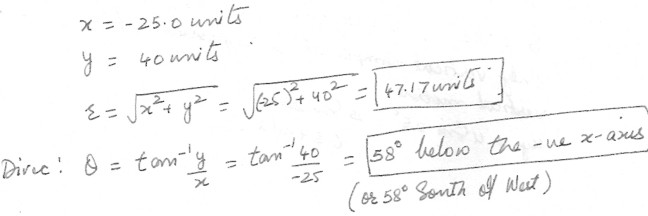 x = -25.0 units
y = 40 units
ε = √x² + y² = √(-25)² + 40² = 47.17 units
Direc: θ = tan⁻¹ y/x = tan⁻¹ 40/-25 = 58° below the -ve x-axis
(or 58° South of West)